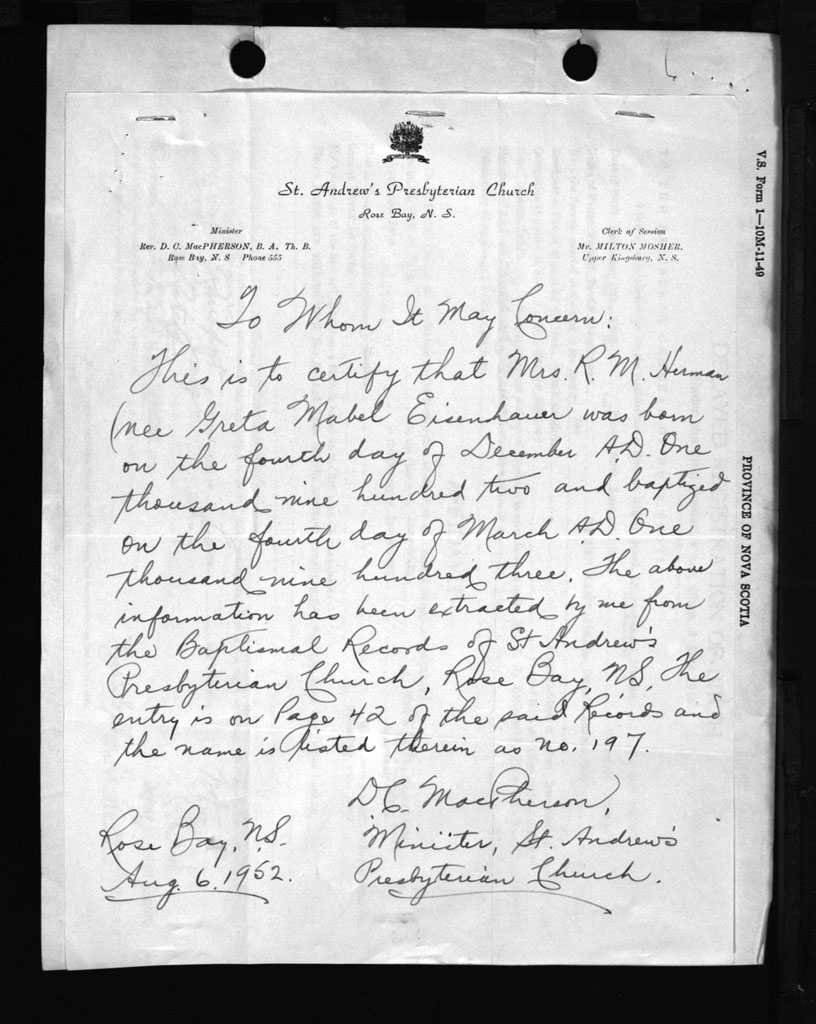 St. Andrew's Presbyterian Church
Rose Bay, N. S.
Minister
Rev. D. C. MacPHERSON, B. A. Th. B.
Rose Bay, N. S Phone 555
Clerk of Session
Mr. MILTON MOSHER,
Upper Kingsburg, N. S.
To Whom It May Concern:
This is to certify that Mrs. R. M. Herman
(nee Greta Mabel Eisenhauer was born
on the fourth day of December A.D. One
thousand nine hundred two and baptized
on the fourth day of March A.D. One
thousand nine hundred three. The above
information has been extracted by me from
the Baptismal Records of St Andrew's
Presbyterian Church, Rose Bay, NS. The
entry is on Page 42 of the said Records and
the name is listed therein as no. 197.
D.C. MacPherson,
Minister, St. Andrew's
Presbyterian Church.
Rose Bay, N.S.
Aug. 6, 1952.
V.S. Form 1—10M-11-49
PROVINCE OF NOVA SCOTIA